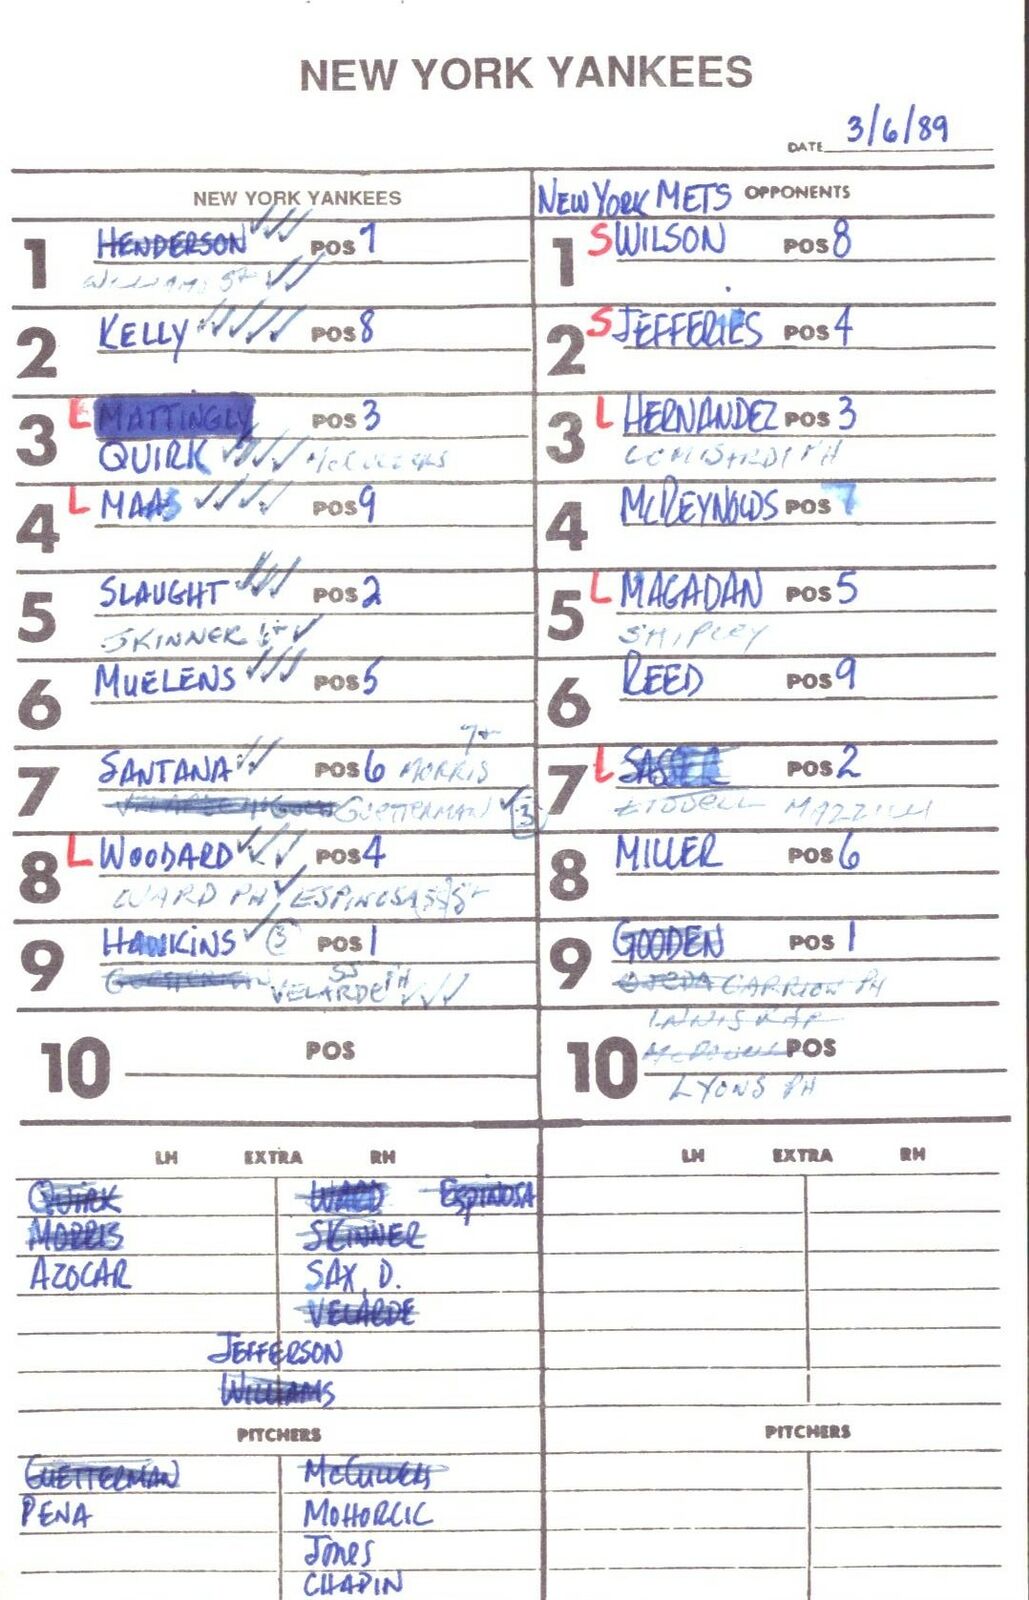 NEW YORK YANKEES
DATE 3/6/89
NEW YORK YANKEES
1 HENDERSON POS 7
WILLIAMS 5+
2 KELLY POS 8
3 L MATTINGLY POS 3
QUIRK McCULLERS
4 L MAAS POS 9
5 SLAUGHT POS 2
SKINNER
6 MUELENS POS 5
7+
7 SANTANA POS 6 MORRIS
GUETTERMAN 3
8 L WOODARD POS 4
WARD PH ESPINOSA
9 HAWKINS 3 POS 1
GUETTERMAN SS VELARDE PH
10 POS
LH EXTRA RH
QUIRK WARD ESPINOSA
MORRIS SKINNER
AZOCAR SAX, D.
VELARDE
JEFFERSON
WILLIAMS
PITCHERS
GUETTERMAN McCULLERS
PENA MOHORCIC
JONES
CHAPIN
NEW YORK METS OPPONENTS
1 S WILSON POS 8
2 S JEFFERIES POS 4
3 L HERNANDEZ POS 3
LOMBARDI PH
4 McREYNOLDS POS 7
5 L MAGADAN POS 5
SHIPLEY
6 REED POS 9
7 L SASSER POS 2
LIDDELL MAZZILLI
8 MILLER POS 6
9 GOODEN POS 1
OJEDA CARRION PH
INNIS
10 McDOWELL POS
LYONS PH
LH EXTRA RH
PITCHERS